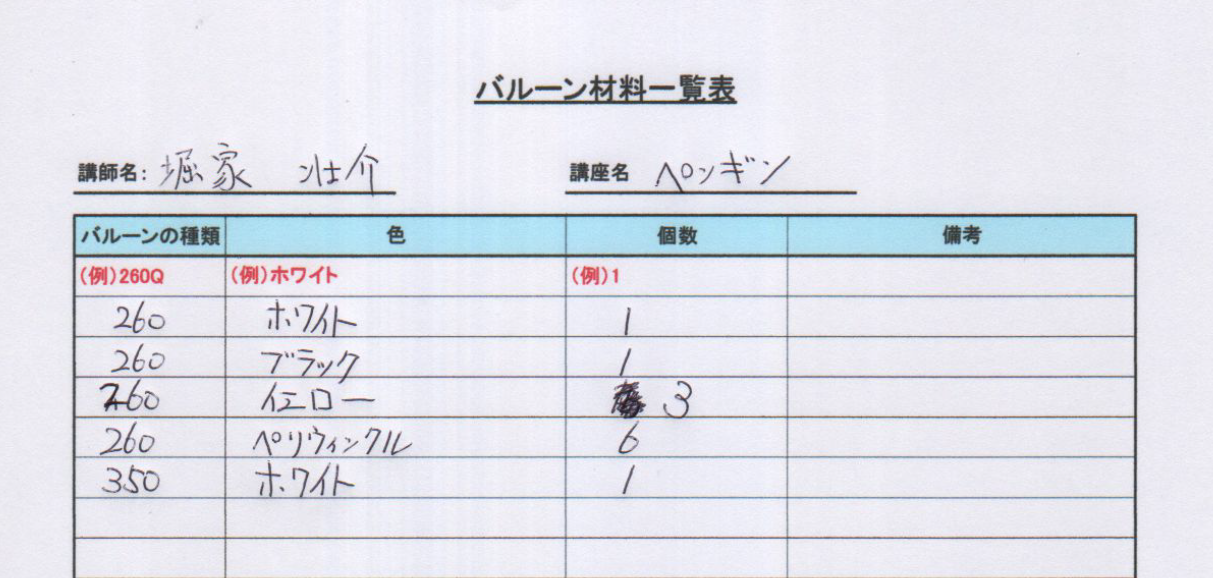 バルーン材料一覧表
講師名: 堀家 壮介 講座名 ペンギン
バルーンの種類 色 個数 備考
(例)260Q (例)ホワイト (例)1
260 ホワイト 1
260 ブラック 1
260 イエロー 3
260 ペリウィンクル 6
350 ホワイト 1